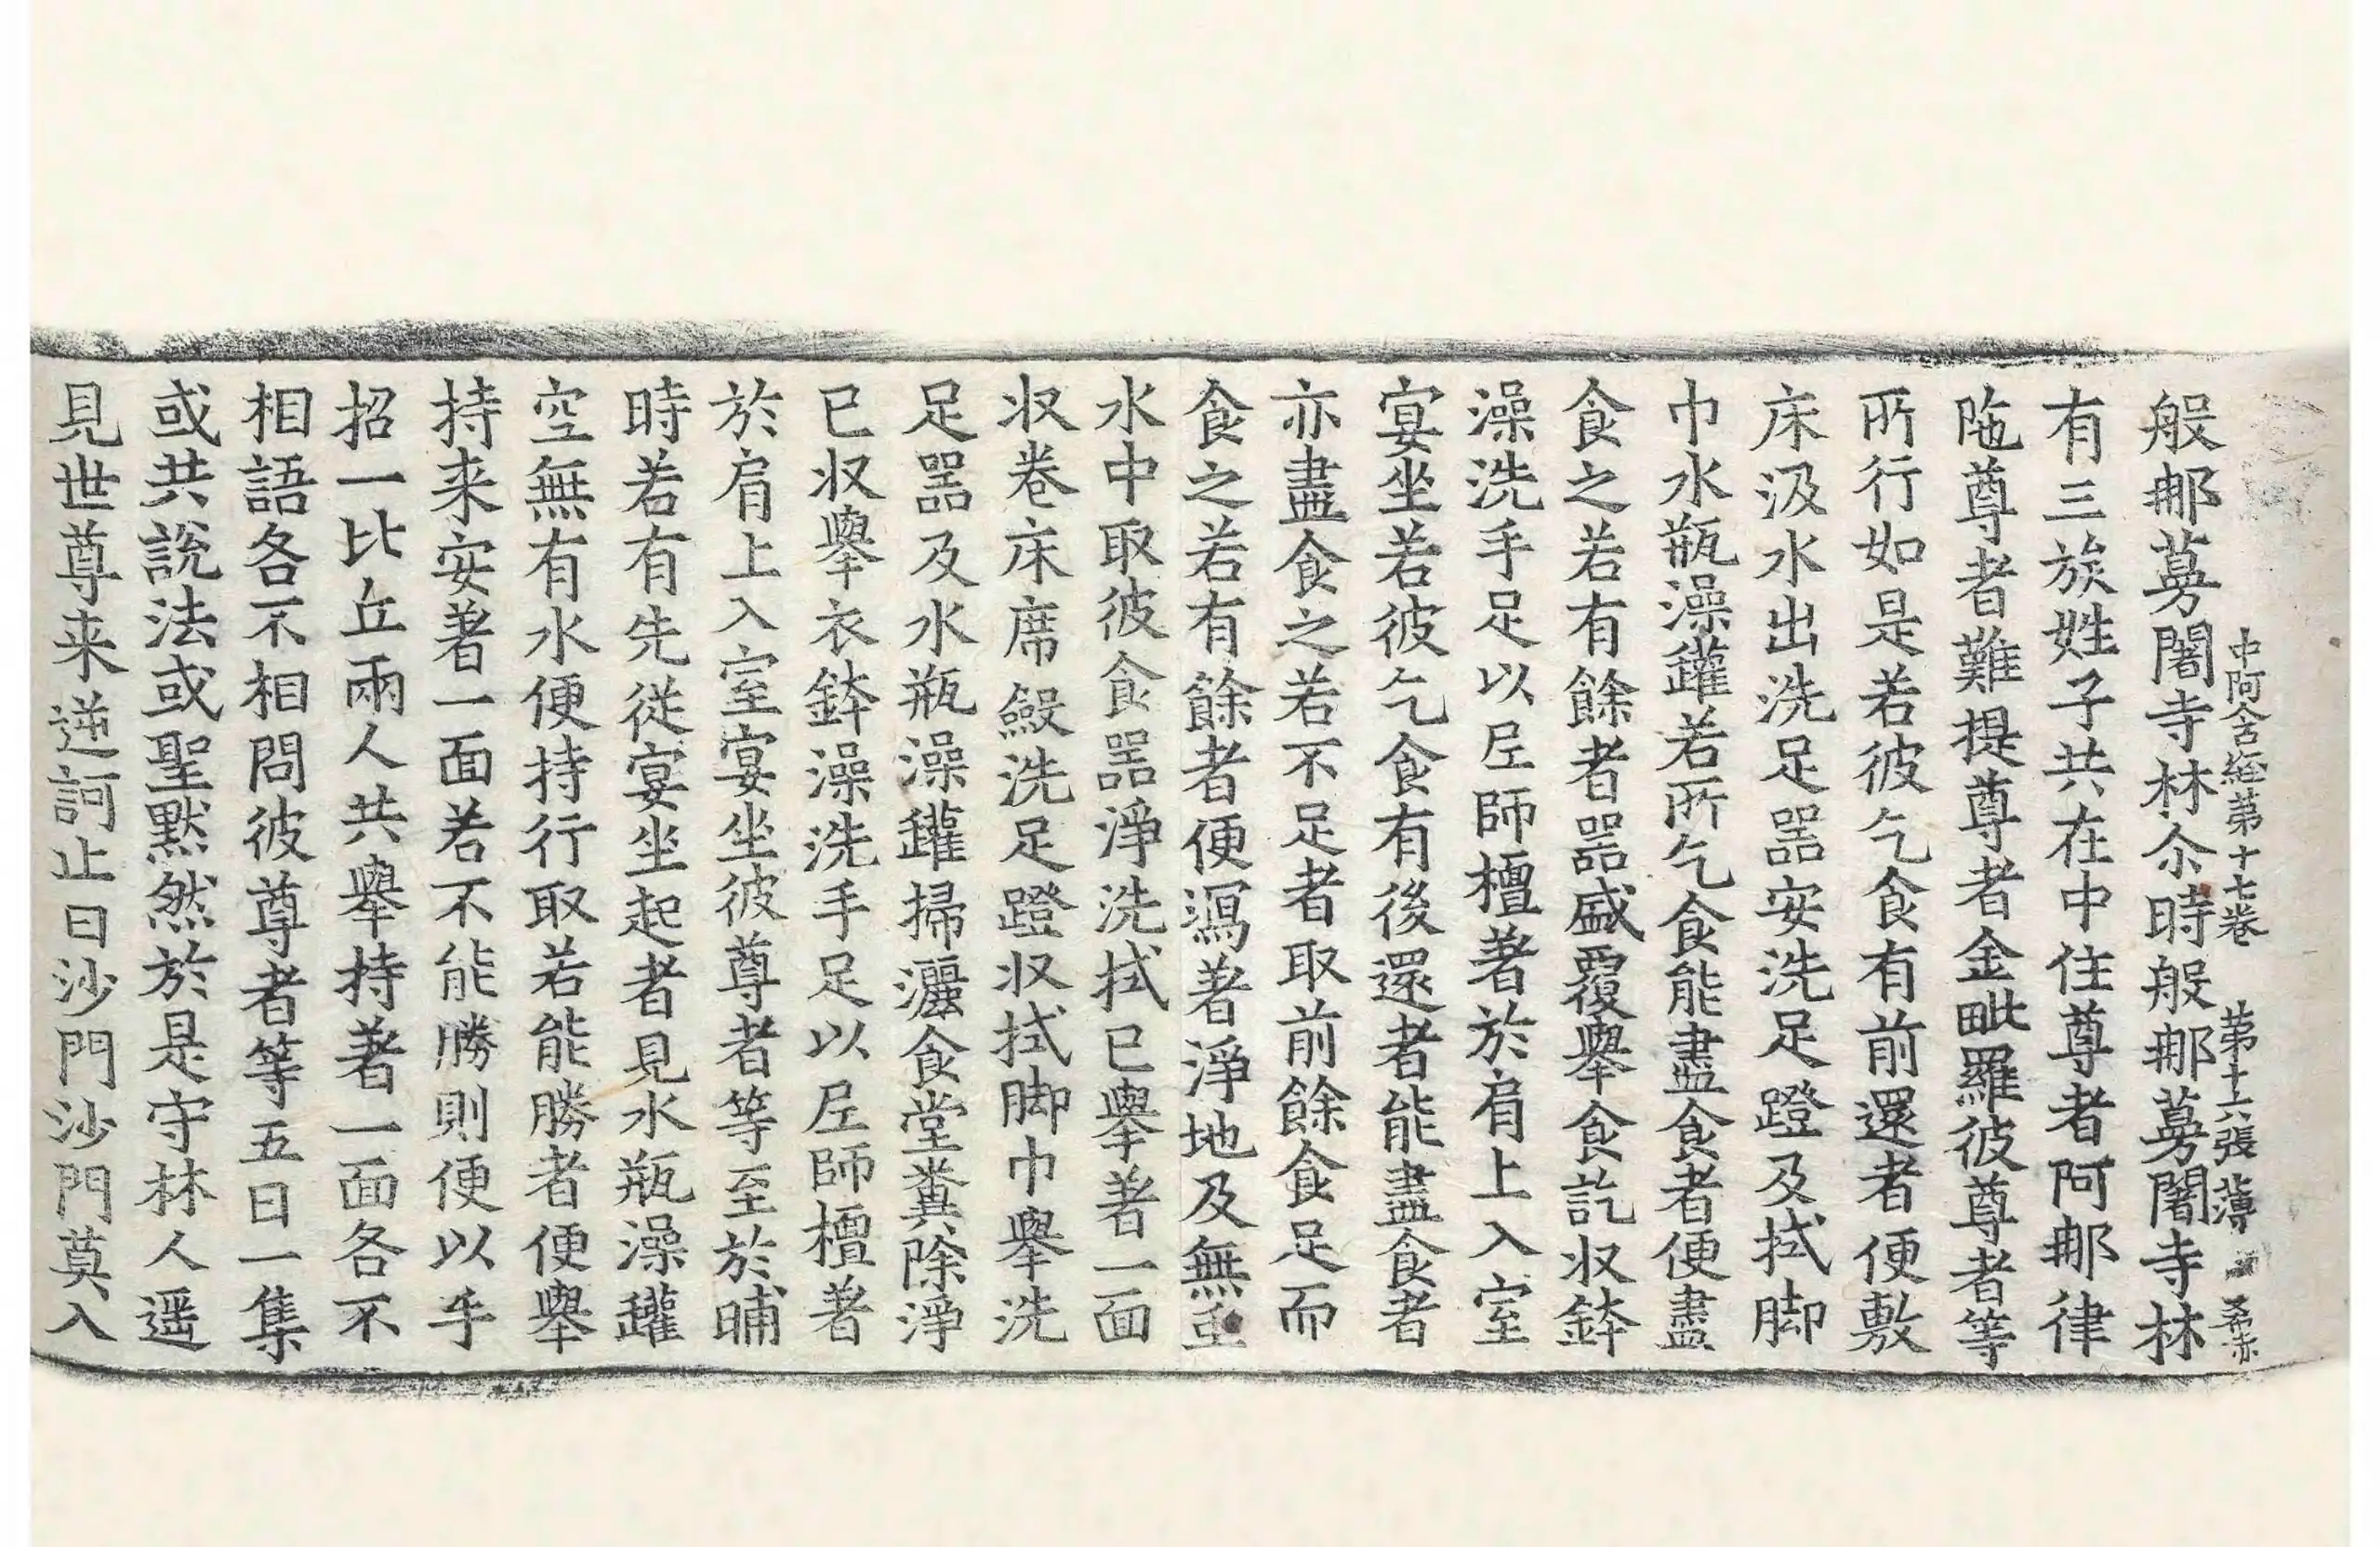 中阿含經第十七卷 第十六張 薄
般那蔓闍寺林尒時般那蔓闍寺林
有三族姓子共在中住尊者阿那律
陁尊者難提尊者金毗羅彼尊者等
所行如是若彼乞食有前還者便敷
床汲水出洗足器安洗足蹬及拭脚
巾水瓶澡罐若所乞食能盡食者便盡
食之若有餘者器盛覆舉食訖收鉢
澡洗手足以尼師檀著於肩上入室
宴坐若彼乞食有後還者能盡食者
亦盡食之若不足者取前餘食足而
食之若有餘者便瀉著淨地及無虫
水中取彼食器淨洗拭已舉著一面
收卷床席斂洗足蹬收拭脚巾舉洗
足器及水瓶澡罐掃灑食堂糞除淨
已收舉衣鉢澡洗手足以尼師檀著
於肩上入室宴坐彼尊者等至於晡
時若有先從宴坐起者見水瓶澡罐
空無有水便持行取若能勝者便舉
持来安著一面若不能勝則便以手
招一比丘兩人共舉持著一面各不
相語各不相問彼尊者等五日一集
或共說法或聖默然於是守林人遥
見世尊来逆訶止曰沙門沙門莫入